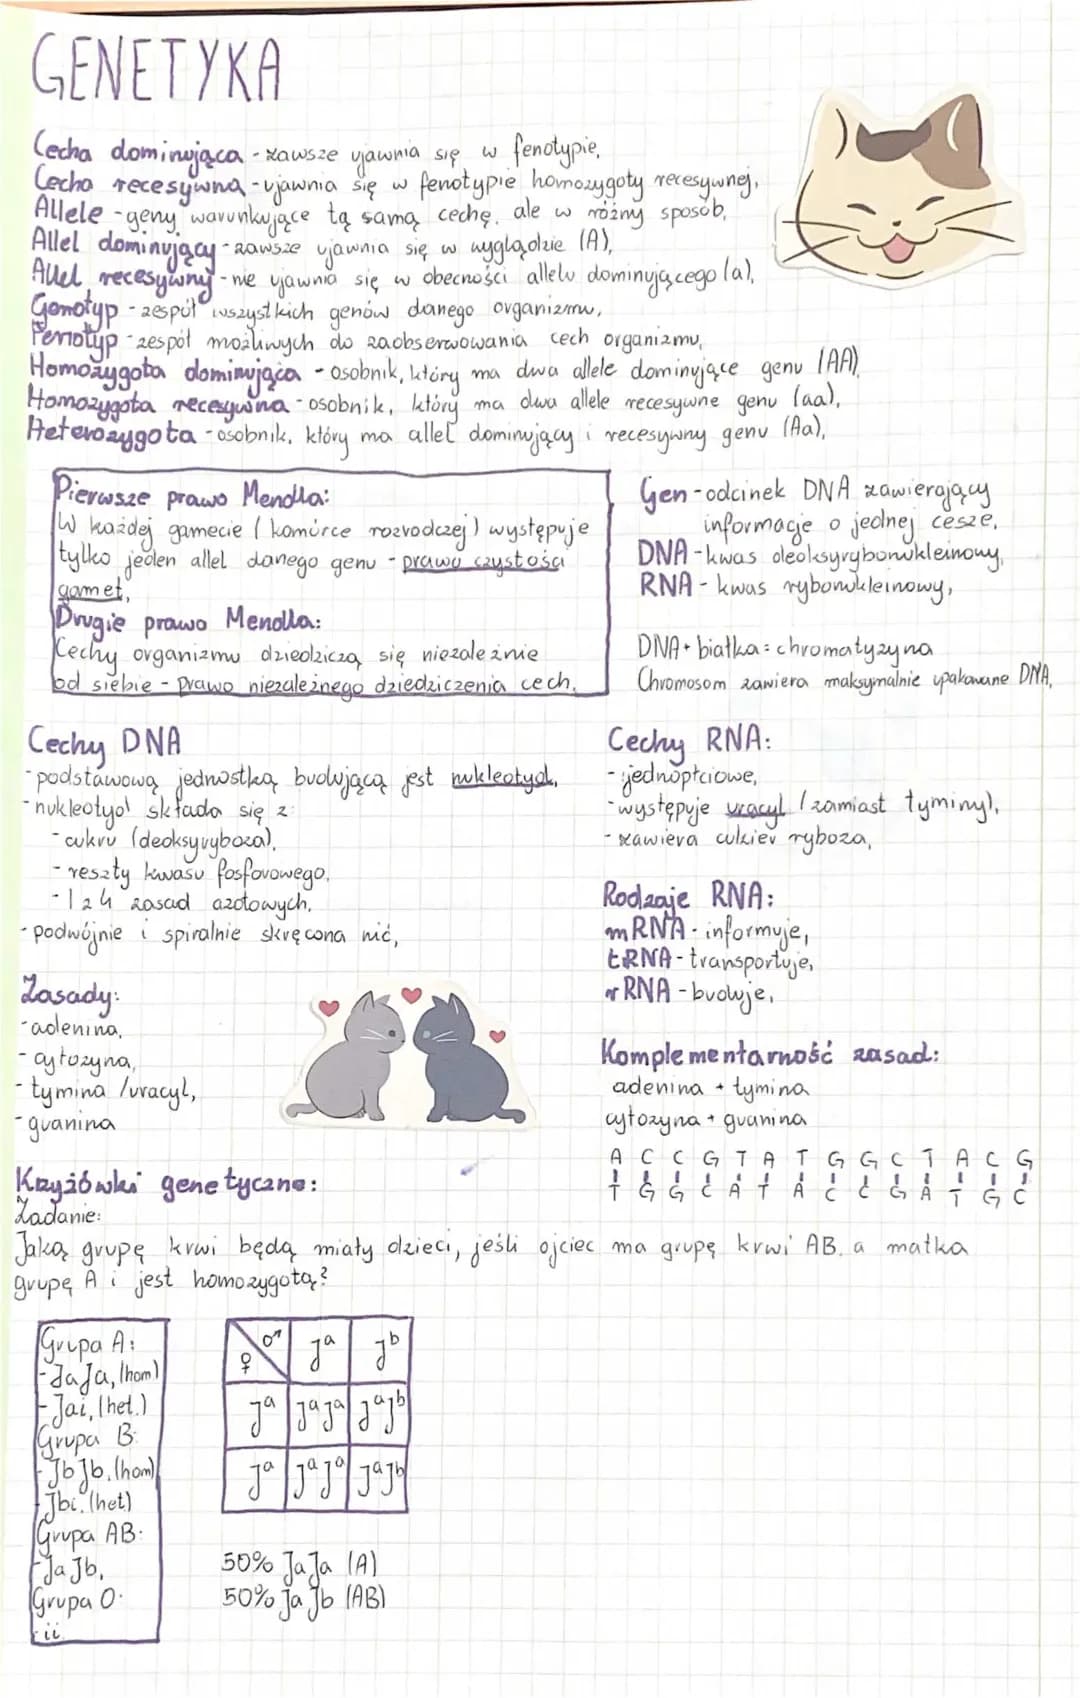 GENETYKA
Cecha dominująca - zawsze ujawnia się w fenotypie,
Cecha recesywna - ujawnia się w fenotypie homozygoty recesywnej,
Allele - geny warunkujące tą samą cechę, ale w różny sposób,
Allel dominujący - zawsze ujawnia się w wyglądzie (A),
Allel recesywny - nie ujawnia się w obecności allelu dominującego (a),
Genotyp - zespół wszystkich genów danego organizmu,
Fenotyp - zespół możliwych do zaobserwowania cech organizmu,
Homozygota dominująca - osobnik, który ma dwa allele dominujące genu (AA),
Homozygota recesywna - osobnik, który ma dwa allele recesywne genu (aa),
Heterozygota - osobnik, który ma allel dominujący i recesywny genu (Aa),
Pierwsze prawo Mendla:
W każdej gamecie (komórce rozrodczej) występuje
tylko jeden allel danego genu - prawo czystości
gamet,
Drugie prawo Mendla:
Cechy organizmu dziedziczą się niezależnie
od siebie - prawo niezależnego dziedziczenia cech.
Gen - odcinek DNA zawierający
informacje o jednej cesze,
DNA - kwas deoksyrybonukleinowy,
RNA - kwas rybonukleinowy,
DNA + białka = chromatyzyna
Chromosom zawiera maksymalnie upakowane DNA,
Cechy DNA
- podstawową jednostką budującą jest nukleotyd,
- nukleotyd składa się z:
- cukru (deoksyryboza),
- reszty kwasu fosforowego,
- 1 z 4 zasad azotowych,
- podwójnie i spiralnie skręcona nić,
Cechy RNA:
- jednopłciowe,
- występuje uracyl (zamiast tyminy),
- zawiera cukier ryboza,
Rodzaje RNA:
mRNA - informuje,
tRNA - transportuje,
rRNA - buduje,
Zasady:
- adenina,
- cytozyna,
- tymina / uracyl,
- guanina
Komplementarność zasad:
adenina + tymina
cytozyna + guanina
A C C G T A T G G C T A C G
T G G C A T A C C G A T G C
Krzyżówki genetyczne:
Zadanie:
Jaką grupę krwi będą miały dzieci, jeśli ojciec ma grupę krwi AB, a matka
grupę A i jest homozygotą?
Grupa A:
- JaJa, (hom)
- Jai, (het.)
Grupa B:
- JbJb, (hom)
- Jbi, (het)
Grupa AB:
- JaJb,
Grupa 0:
- ii
♀ ♂ Jᵃ Jᵇ
Jᵃ JᵃJᵃ JᵃJᵇ
Jᵃ JᵃJᵃ JᵃJᵇ
50% JaJa (A)
50% JaJb (AB)